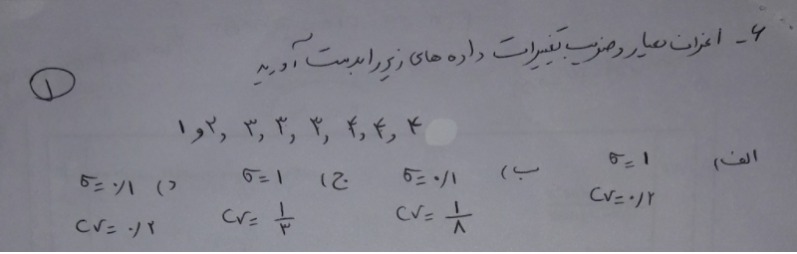 ۶- انحراف معیار و ضریب تغییرات داده های زیر را بدست آورید
۱
۱ و ۲, ۳, ۳, ۳, ۴, ۴, ۴
الف) σ=۱ ب) σ=۰/۱ ج) σ=۱ د) σ=۰/۱
CV=۰/۲ CV=۱/۸ CV=۱/۳ CV=۰/۲